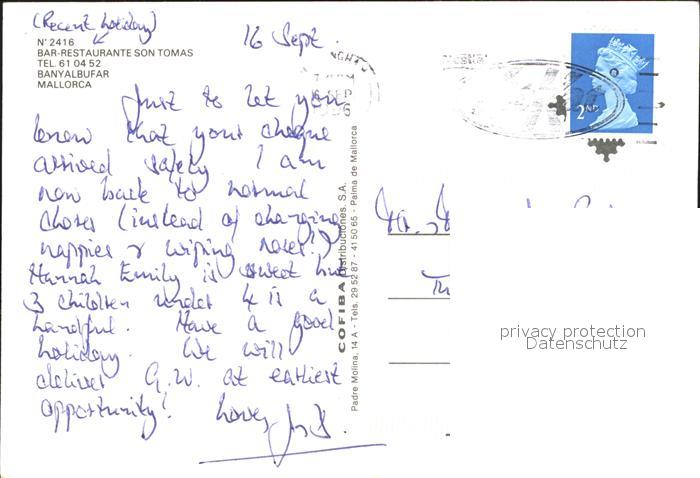 (Recent holiday)
16 Sept.
Nº 2416
BAR-RESTAURANTE SON TOMAS
TEL. 61 04 52
BANYALBUFAR
MALLORCA
Just to let you
know that your cheque
arrived safely. I am
now back to normal
chores (instead of changing
nappies & wiping noses!)
Hannah Emily is sweet but
3 children under 4 is a
handful. Have a good
holiday. We will
deliver G.W. at earliest
opportunity!
Love,
COFIBA Distribuciones, S.A.
Padre Molina, 14 A - Tels. 29 52 87 - 415065 - Palma de Mallorca
SEP
2ND
privacy protection
Datenschutz